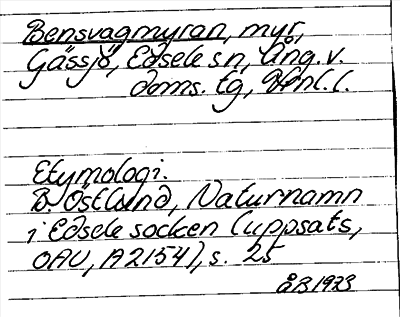 Bensvagmyran, myr,
Gässjö, Edsele sn, Ång. v.
doms. tg, Vbnl. l.
Etymologi.
B. Östlund, Naturnamn
i Edsele socken (uppsats,
OAU, A2154), s. 25
ÅB 1973